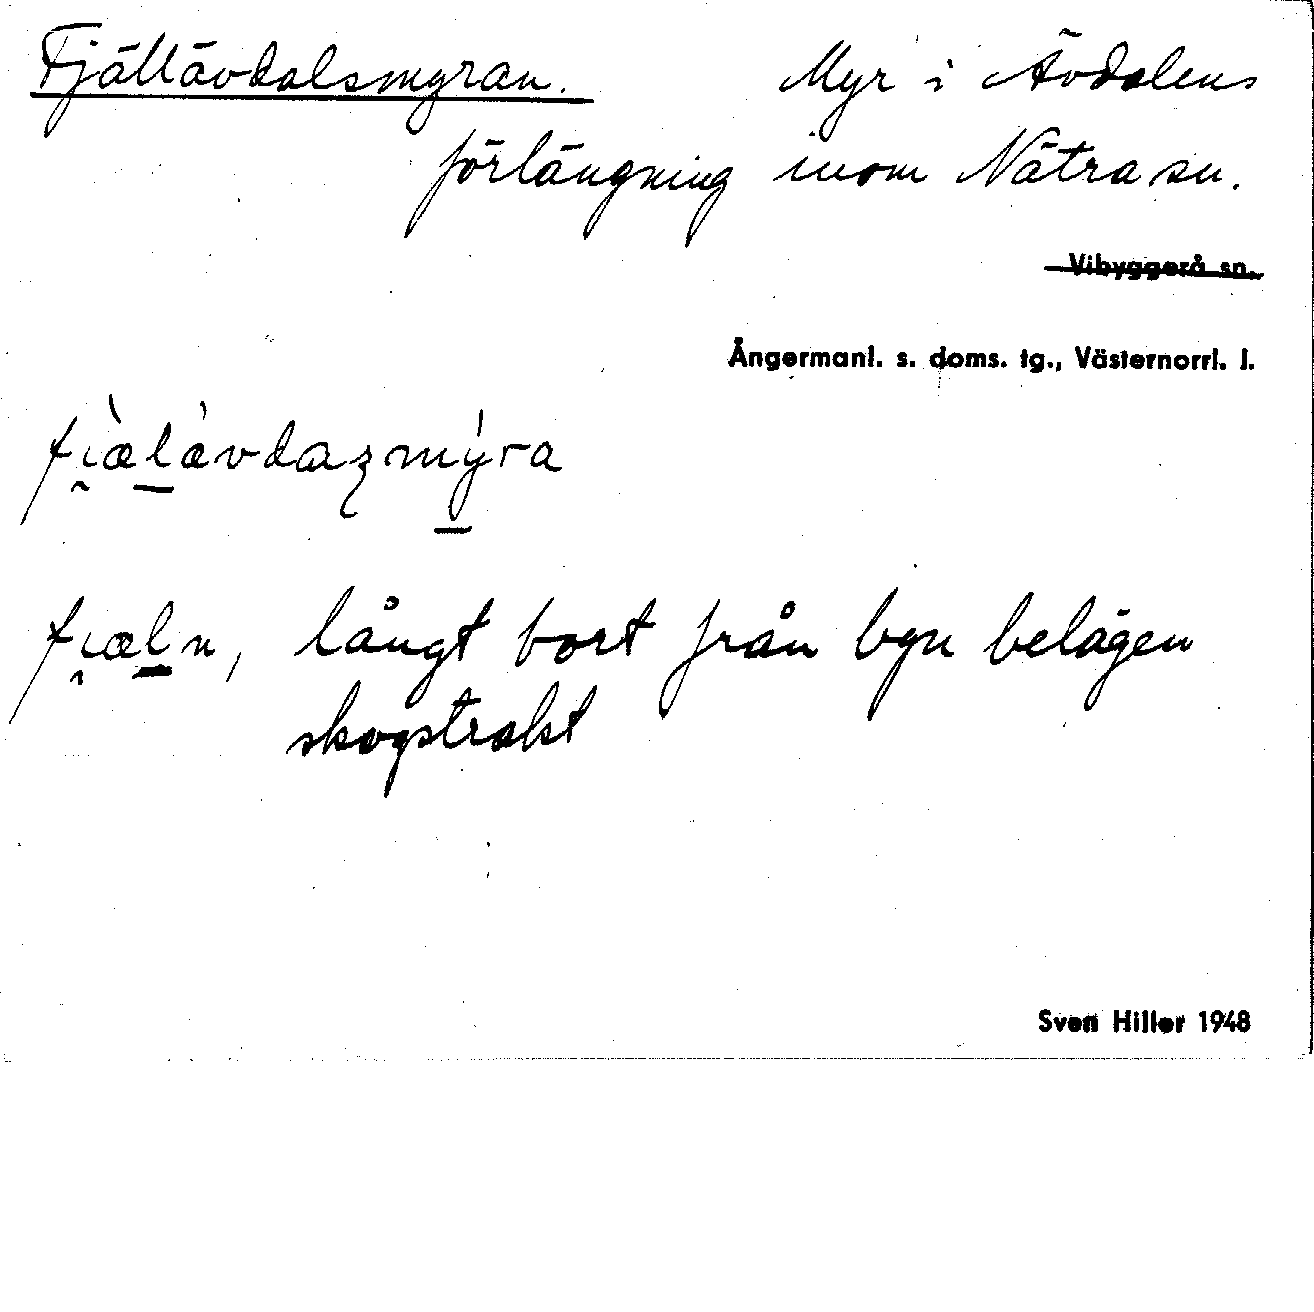 Fjällävdalsmyran. Myr i Ävdalens
förlängning inom Nätra sn.
Vibyggerå sn.
Ångermanl. s. doms. tg., Västernorrl. l.
fi̯æ̀lǽvdaʐmýra
fi̯æln, långt bort från byn belägen
skogstrakt
Sven Hiller 1948